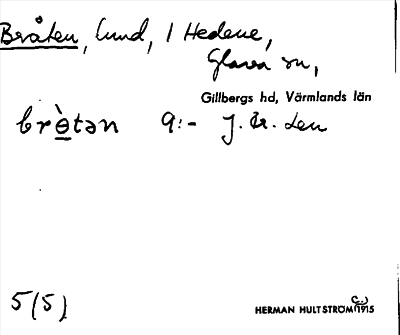 Bråten, lund, 1 Hedene,
Glava sn,
Gillbergs hd, Värmlands län
brɵ̀tən 9:- J. Gr. den
5(5)
HERMAN HULTSTRÖM 1915